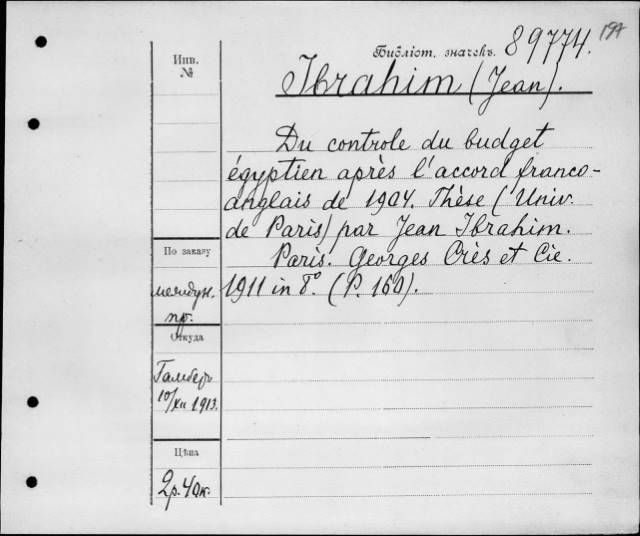 197
Библіот. значекъ. 89774.
Инв.
№
Ibrahim (Jean).
Du controle du budget
égyptien après l'accord franco-
anglais de 1904. Thèse (Univ.
de Paris) par Jean Ibrahim.
Paris. Georges Crès et Cie.
1911 in 8°. (P. 160).
По заказу
междун.
пр.
Откуда
Гамберъ
10/XII 1913.
Цѣна
2р. 40к.